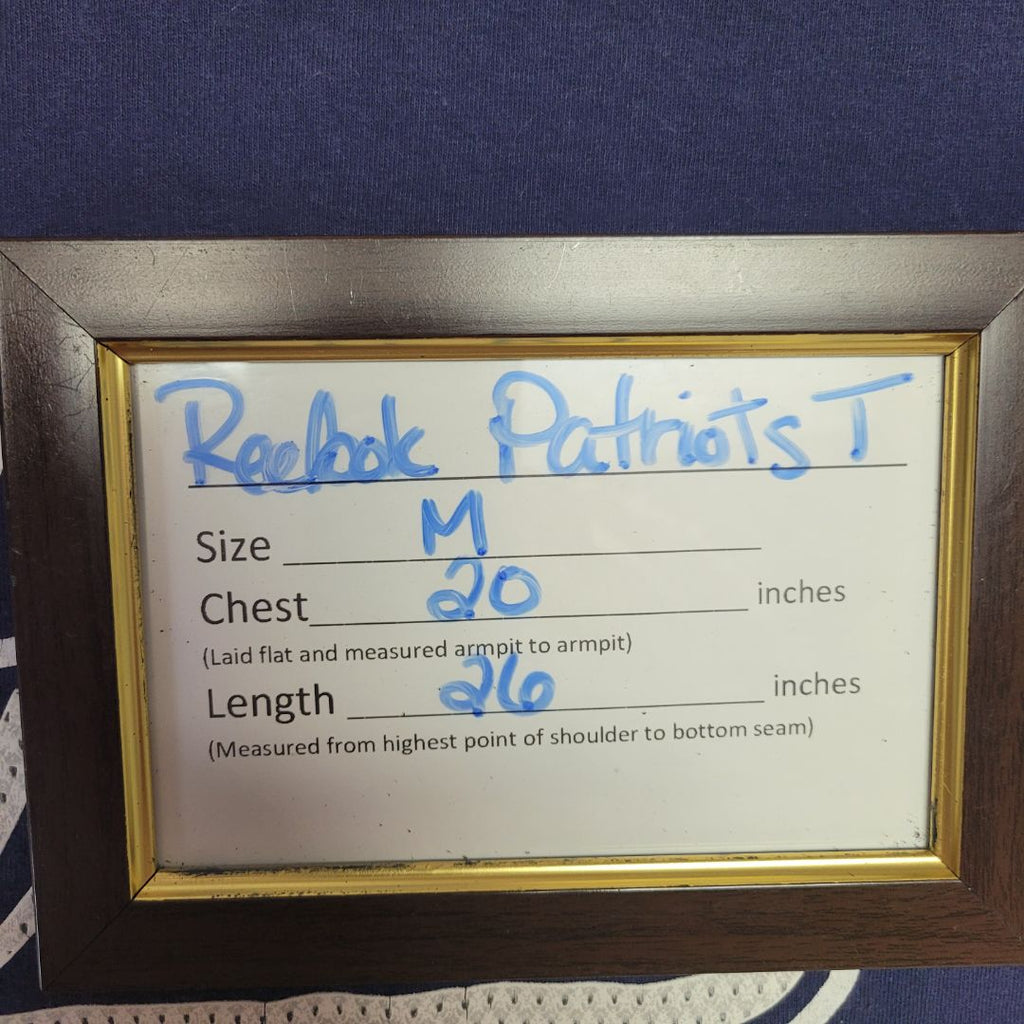 Reebok Patriots T
Size M
Chest 20 inches
(Laid flat and measured armpit to armpit)
Length 26 inches
(Measured from highest point of shoulder to bottom seam)